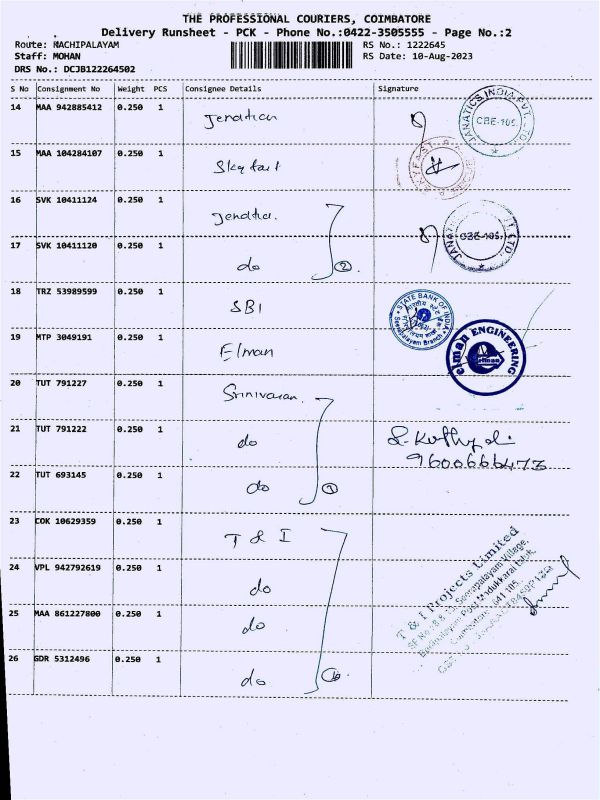 THE PROFESSIONAL COURIERS, COIMBATORE
Delivery Runsheet - PCK - Phone No.:0422-3505555 - Page No.:2
Route: MACHIPALAYAM RS No.: 1222645
Staff: MOHAN RS Date: 10-Aug-2023
DRS No.: DCJB122264502
S No Consignment No Weight PCS Consignee Details Signature
14 MAA 942885412 0.250 1 Jenatics JANATICS INDIA PVT. LTD. CBE-105.
15 MAA 104284107 0.250 1 Sky fast
16 SVK 10411124 0.250 1 Jenatics.
17 SVK 10411120 0.250 1 do 2 CBE-105.
18 TRZ 53989599 0.250 1 SBI STATE BANK OF INDIA
19 MTP 3049191 0.250 1 Elman elman ENGINEERING
20 TUT 791227 0.250 1 Srinivasan.
21 TUT 791222 0.250 1 do 9600666473
22 TUT 693145 0.250 1 do
23 COK 10629359 0.250 1 T & I
24 VPL 942792619 0.250 1 do T & I Projects Limited
25 MAA 861227800 0.250 1 do
26 GDR 5312496 0.250 1 do